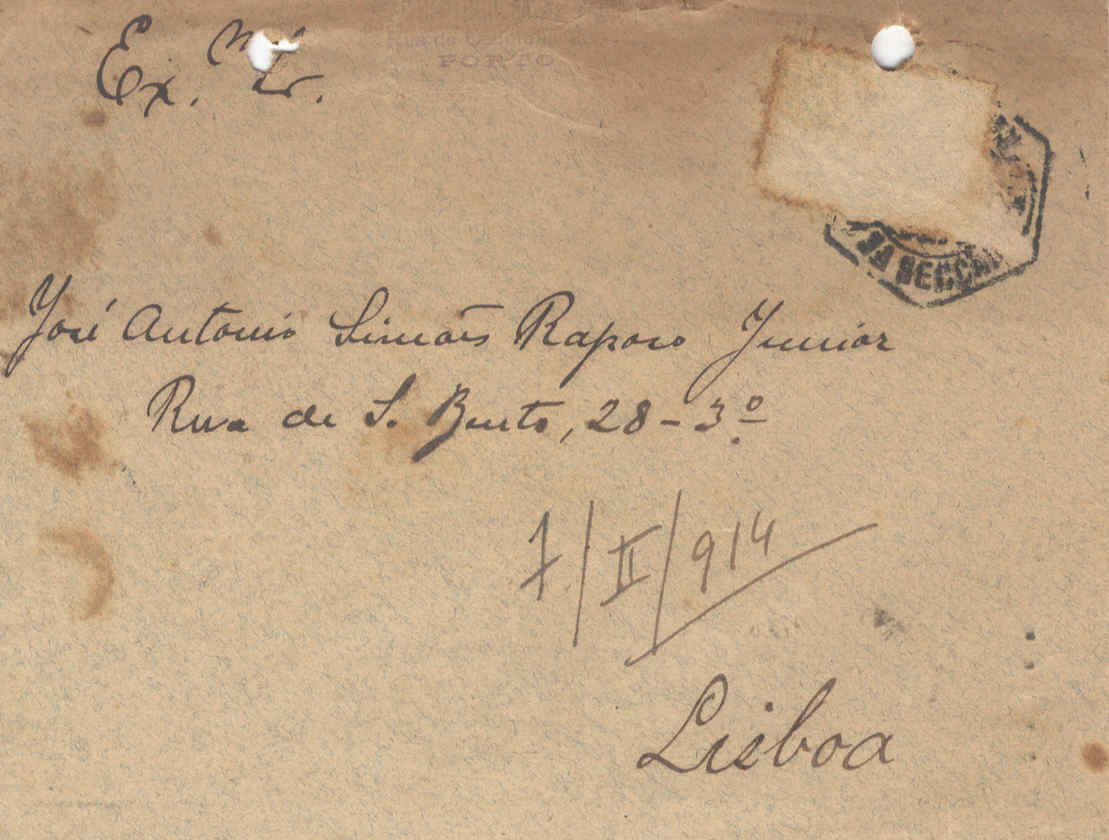 PORTO
Ex. mo
José Antonio Simões Raposo Junior
Rua de S. Bento, 28-3.º
7/II/914
Lisboa